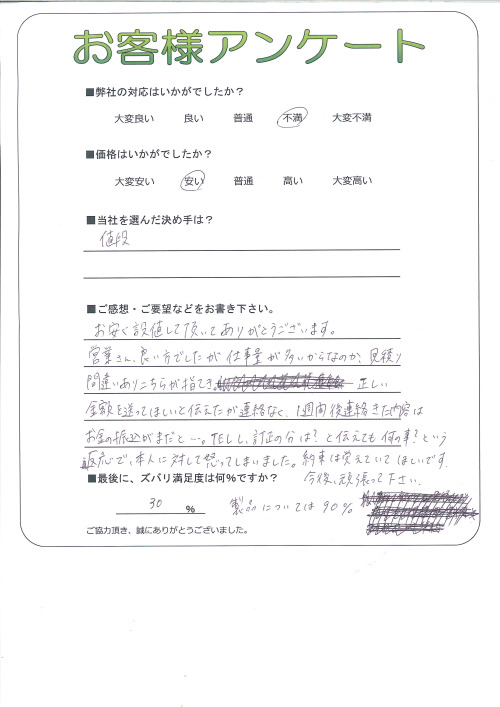 お客様アンケート
■弊社の対応はいかがでしたか？
大変良い 良い 普通 不満 大変不満
■価格はいかがでしたか？
大変安い 安い 普通 高い 大変高い
■当社を選んだ決め手は？
値段
■ご感想・ご要望などをお書き下さい。
お安く設値して頂いてありがとうございます。
営業さん、良い方でしたが仕事量が多いからなのか、見積り
間違いありこちらが指てき。正しい
金額を送ってほしいと伝えたが連絡なく、1週間後連絡きた内容は
お金の振込がまだと…。TELし、訂正の分は？と伝えても何の事？という
返応で、本人に対して怒ってしまいました。約束は覚えていてほしいです。
今後、頑張って下さい。
■最後に、ズバリ満足度は何%ですか？
30 % 製品については90%
ご協力頂き、誠にありがとうございました。